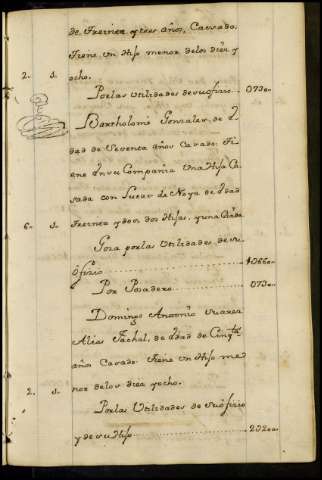 de Treinta y tres años, Casado.
Tiene un Hijo menor delos diez y
2. s. ocho.
Por las Utilidades de su oficio.. 0730„
Bartholomè Gonzalez de Hedad
dad de Setenta años Casado. Tiene
ene en su Compania Una Hija Casada
sada con Lucas de Noya de Hedad
6. s. Treinta y dos, dos Hijas, y una Criada
Goza por las Utilidades de su
Oficio
Por Posadero 0730„
Domingo Antonio Suarez
Alias Fachal, de Hedad de Cinqta
años Casado. Tiene un Hijo me
2. s. nor delos diez y ocho.
Por las Utilidades de su oficio
y de su Hijo